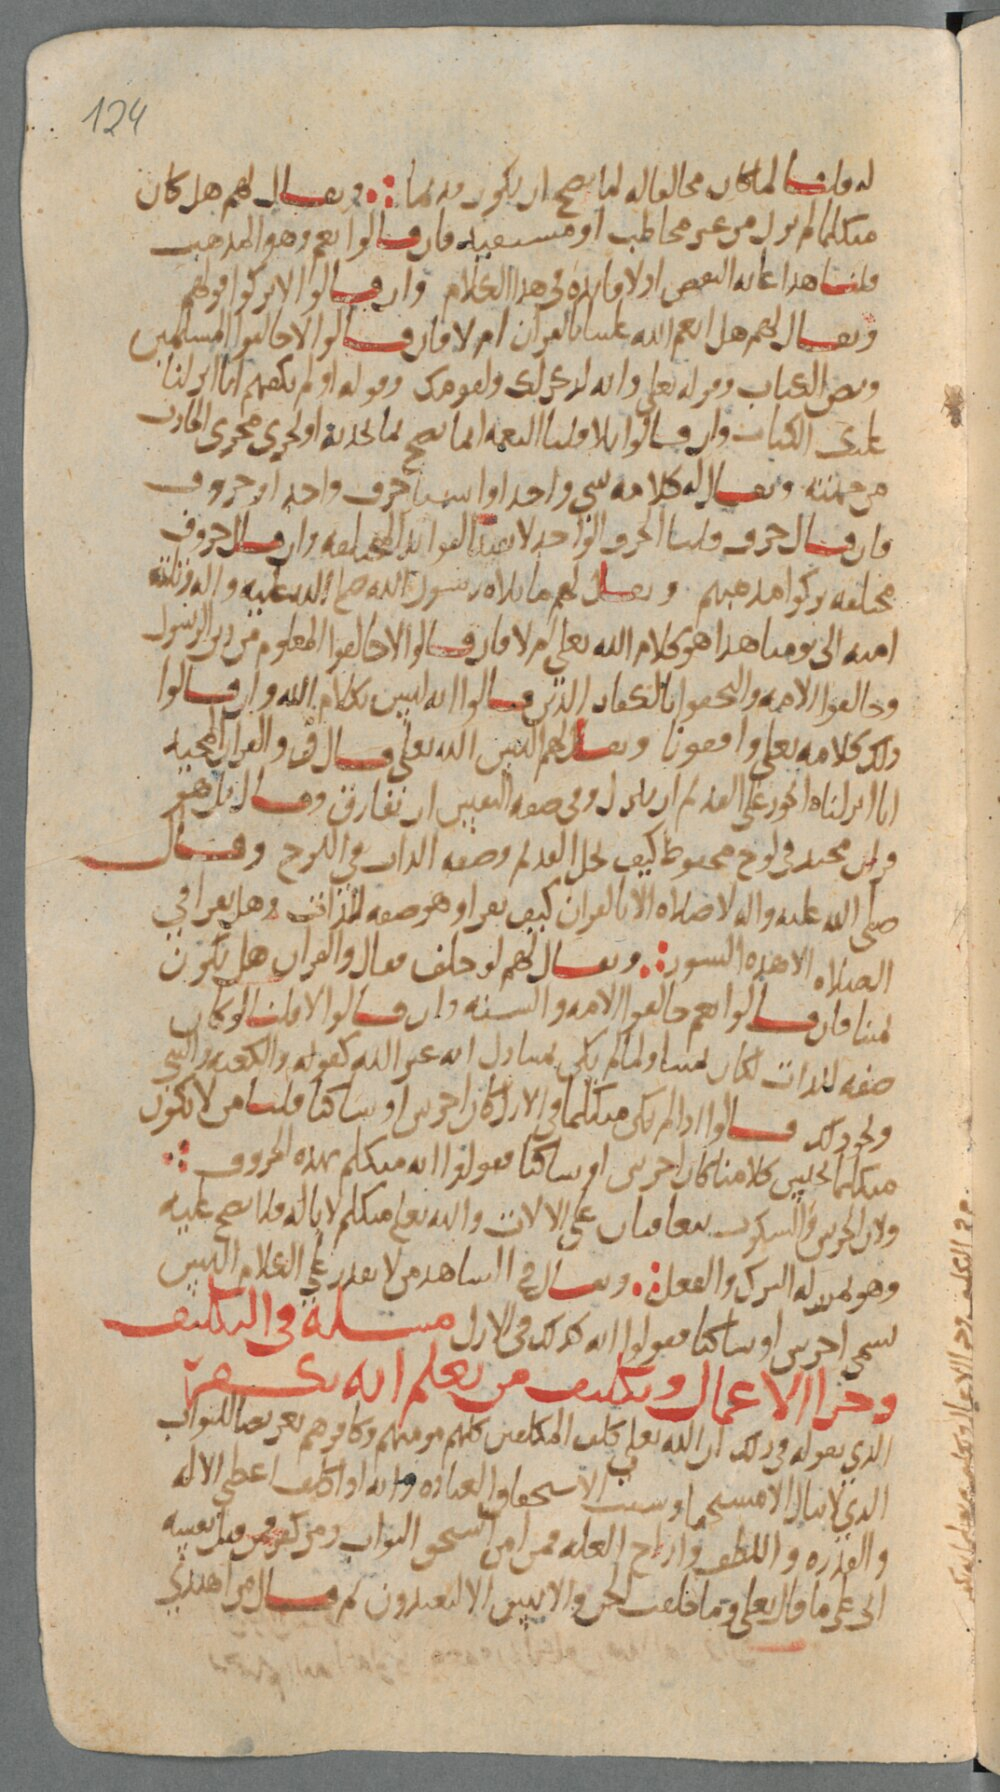 124
له قلنا لما كان مخالفا له لما صح ان يكون منهما ويقال لهم هل كان
متكلما لم يزل من غير مخاطب او مستفيد فان قالوا نعم وهو المذهب
قلنا هذا غاية النقص اذ لا فائدة في هذا الكلام وان قالوا لا تركوا قولهم
ويقال لهم هل انعم الله علينا بالقران ام لا فان قالوا لا خالفوا المسلمين
ونص الكتاب وقوله تعلى وانه لذكر لك ولقومك وقوله اولم يكفهم انا انزلنا
عليك الكتاب وان قالوا بلا قلنا النعمة انما تصح بما يحدثه او يجري مجرى الحادث
من جهته ويقال له كلامه شي واحد او اشيا حرف واحد او حروف
فان قال حرف قلنا الحرف الواحد لا يفيد الفوايد المختلفه وان قال حروف
مختلفه تركوا مذهبهم ويقال لهم ما تلاه رسول الله صلى الله عليه واله وتلته
امته الى يومنا هذا هو كلام الله تعلى ام لا فان قالوا لا خالفوا المعلوم من دين الرسول
وخالفوا الامه والتحقوا بالكفار الذين قالوا انه ليس بكلام الله وان قالوا
ذلك كلامه تعلى وافقونا ويقال لهم اليس الله تعلى قال ق والقران المجيد
انا انزلناه ايجوز على القديم ان ينزل وفي صفة النفس ان تفارق وقال بل هو
قران مجيد في لوح محفوظ كيف يحل القديم وصفة الذات في اللوح وقال
صلى الله عليه واله لا صلاه الا بالقران كيف يقرا وهو صفه للذات وهل يقرا في
الصلاه الا هذه السور ويقال لهم لو حلف فقال والقران هل يكون
يمينا فان قالوا نعم خالفوا الامه والسنه وان قالوا لا قلنا لو كان
صفه لذات لكان يمينا ولما لم يكن يمينا دل انه غير الله كقوله والكعبه والنبي
ونحو ذلك قالوا اذا لم يكن متكلما في الازل كان اخرس او ساكتا قلنا من لا يكون
متكلما بجنس كلامنا كان اخرس او ساكتا فقولوا انه متكلم بهذه الحروف
ولان الخرس والسكوت يتعاقبان على الالات والله تعلى متكلم لا باله فلا يصح عليه
وهو بمنزله الترك والفعل ويقال في الشاهد من لا يقدر على الكلام اليس
يسمى اخرس او ساكتا فقولوا انه كذلك في الازل مسلة في التكليف
وجزا الاعمال وتكليف من يعلم انه يكفر
الذي نقوله في ذلك ان الله تعلى كلف المكلفين كلهم مومنهم وكافرهم تعريضا للثواب
الذي لا ينال الا مستحقا وسبب الاستحقاق العباده وانه اذا كلف اعطى الاله
والقدره واللطف وازاح العله فمن امن استحق الثواب ومن كفر فمن قبل نفسه
اتى على ما قال تعلى وما خلقت الجن والانس الا ليعبدون ثم قال من اهتدى